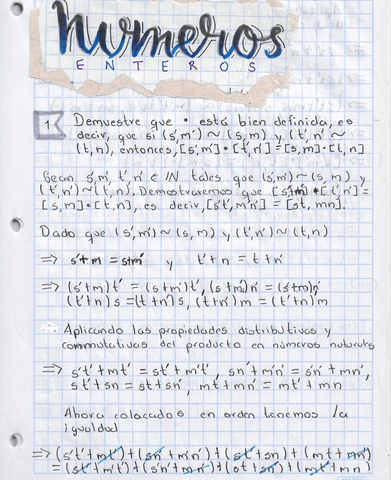 Números
ENTEROS
1 Demuestre que • está bien definida, es
decir, que si (s',m') ~ (s,m) y (t',n') ~
(t,n), entonces, [s',m'] • [t',n'] = [s,m] • [t,n]
Sean s',m', t',n' ∈ IN tales que (s',m') ~ (s,m) y
(t',n') ~ (t,n). Demostraremos que [s',m'] • [t',n'] =
[s,m] • [t,n], es decir, [s't', m'n'] = [st, mn].
Dado que (s',m') ~ (s,m) y (t',n') ~ (t,n)
⇒ s'+m = s+m' y t'+n = t+n'
⇒ (s'+m)t' = (s+m')t', (s+m')n' = (s'+m)n'
(t'+n)s = (t+n')s, (t+n')m = (t'+n)m
Aplicando las propiedades distributivas y
conmutativas del producto en números naturales
⇒ s't'+mt' = st'+m't', sn'+m'n' = s'n'+mn',
st'+sn = st+sn', mt+mn' = mt'+mn
Ahora colocados en orden tenemos la
igualdad
⇒ (s't'+mt')+(sn'+m'n')+(st'+sn)+(mt+mn')
= (st'+m't')+(s'n'+mn')+(st+sn')+(mt'+mn)